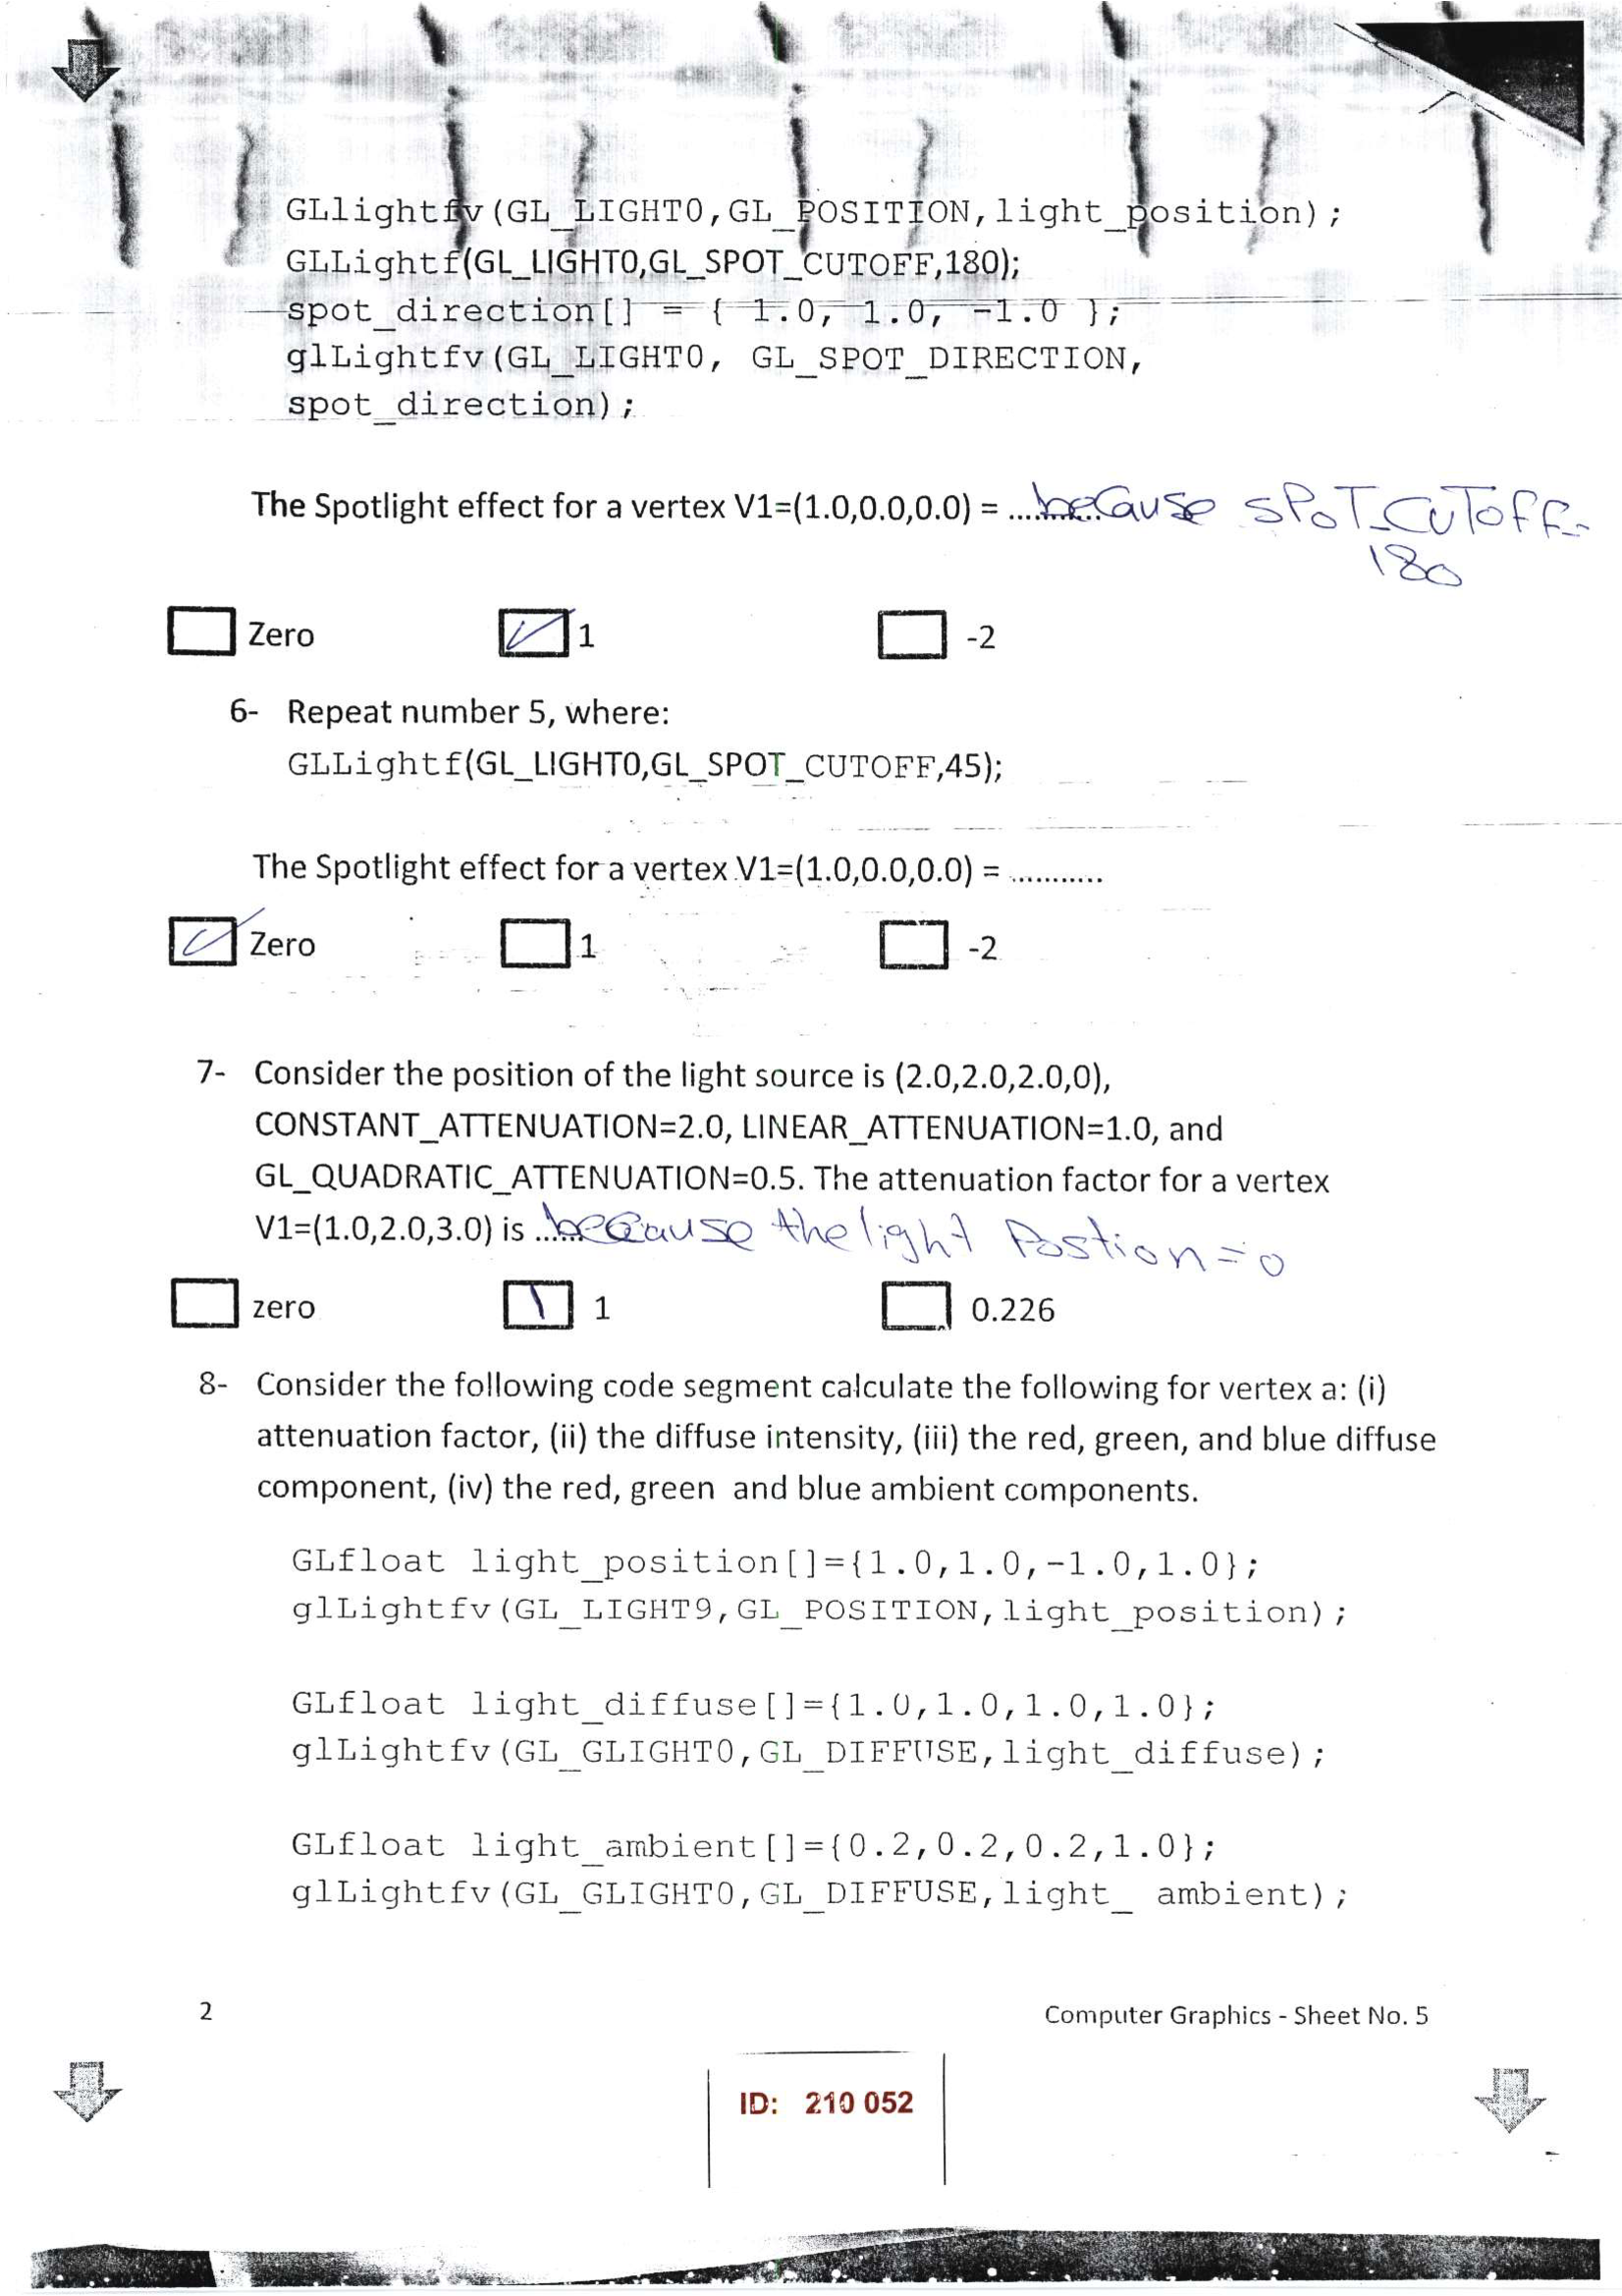 GLlightfv(GL_LIGHT0,GL_POSITION,light_position);
GLLightf(GL_LIGHT0,GL_SPOT_CUTOFF,180);
spot_direction[] = { 1.0, 1.0, -1.0 };
glLightfv(GL_LIGHT0, GL_SPOT_DIRECTION,
spot_direction);
The Spotlight effect for a vertex V1=(1.0,0.0,0.0) = .......... because SPOT_CUTOFF=
180
Zero 1 -2
6- Repeat number 5, where:
GLLightf(GL_LIGHT0,GL_SPOT_CUTOFF,45);
The Spotlight effect for a vertex V1=(1.0,0.0,0.0) = ...........
Zero 1 -2
7- Consider the position of the light source is (2.0,2.0,2.0,0),
CONSTANT_ATTENUATION=2.0, LINEAR_ATTENUATION=1.0, and
GL_QUADRATIC_ATTENUATION=0.5. The attenuation factor for a vertex
V1=(1.0,2.0,3.0) is ...... because the light Postion = 0
zero 1 0.226
8- Consider the following code segment calculate the following for vertex a: (i)
attenuation factor, (ii) the diffuse intensity, (iii) the red, green, and blue diffuse
component, (iv) the red, green and blue ambient components.
GLfloat light_position[]={1.0,1.0,-1.0,1.0};
glLightfv(GL_LIGHT9,GL_POSITION,light_position);
GLfloat light_diffuse[]={1.0,1.0,1.0,1.0};
glLightfv(GL_GLIGHT0,GL_DIFFUSE,light_diffuse);
GLfloat light_ambient[]={0.2,0.2,0.2,1.0};
glLightfv(GL_GLIGHT0,GL_DIFFUSE,light_ ambient);
2 Computer Graphics - Sheet No. 5
ID: 210 052